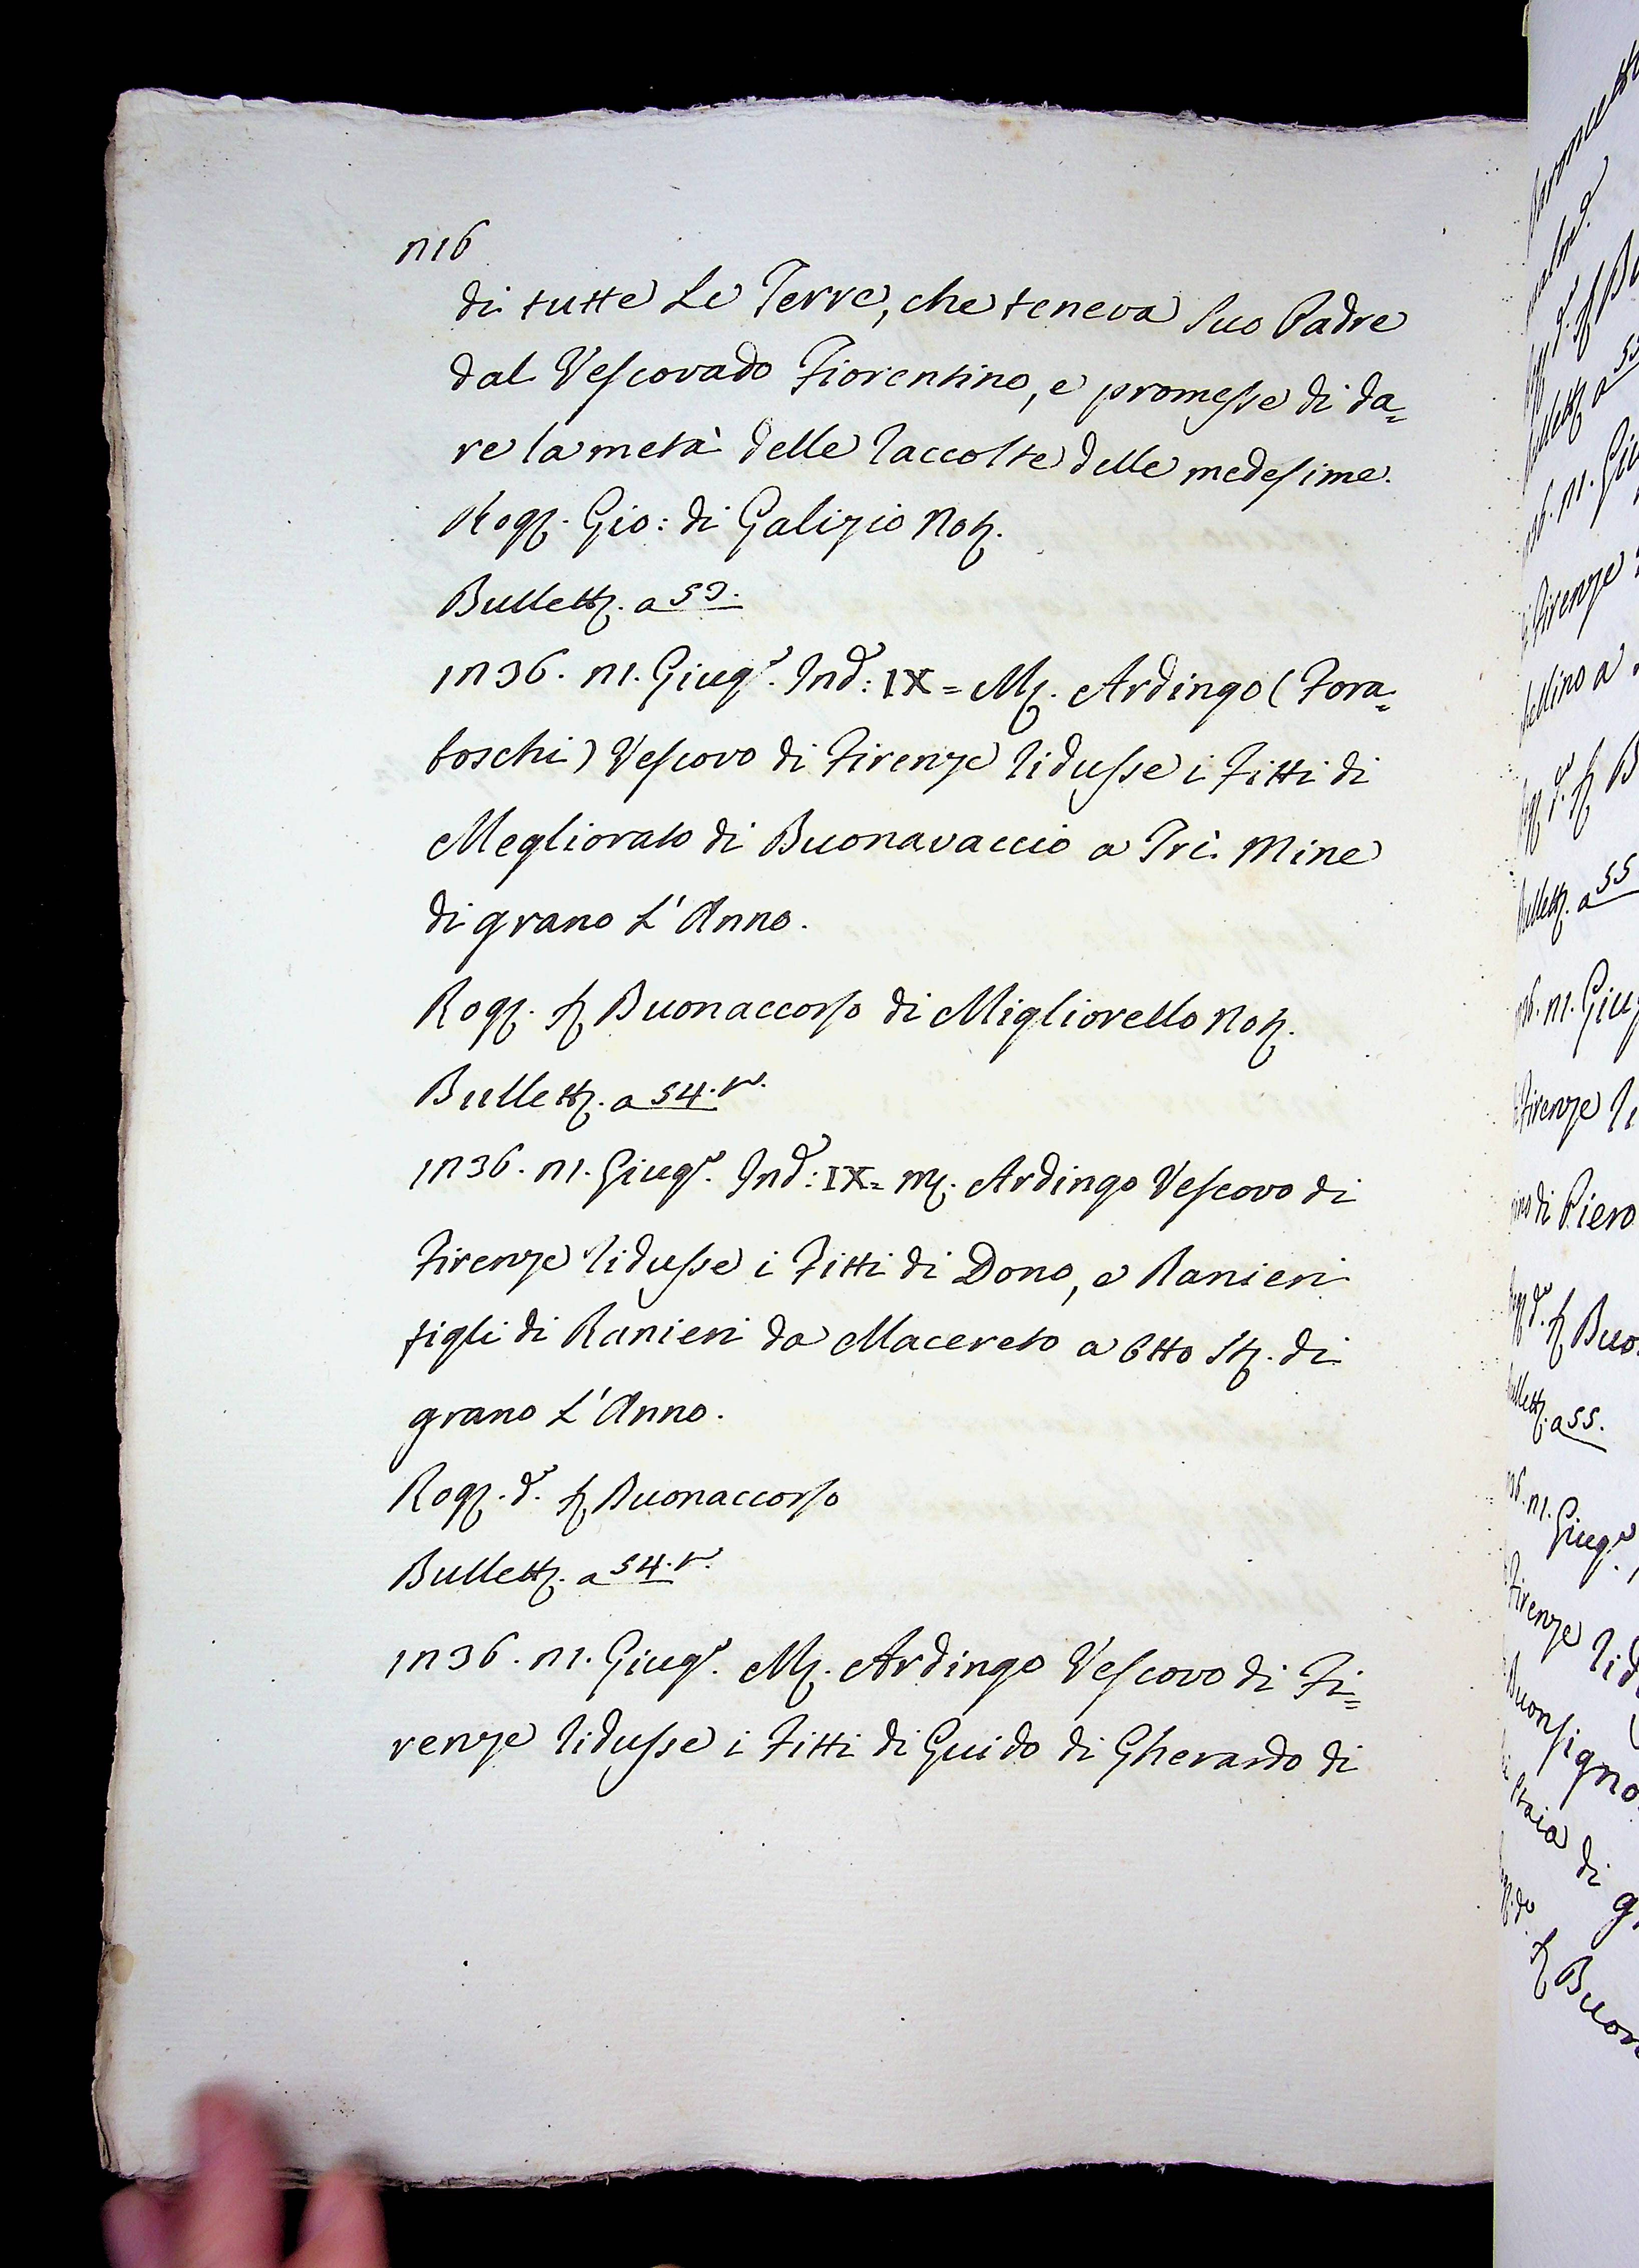 216
di tutte Le Terre, che teneva Suo Padre
dal Vescovado Fiorentino, e promesse di da=
re la metà delle raccolte delle medesime.
Rogò. Gio: di Galizio Not.
Bullett. a 53.
1236. 21. Giug.o Ind.e: IX= M. Ardingo (Fora=
boschi) Vescovo di Firenze ridusse i Fitti di
Megliorato di Buonavaccio a Trè Mine
di grano L'Anno.
Rog. S. Buonaccorso di Migliorello Not.
Bullett. a 54. v.
1236. 21. Giug.o Ind.e: IX= M. Ardingo Vescovo di
Firenze ridusse i Fitti di Dono, e Ranieri
figli di Ranieri da Macereto a Otto St. di
grano L'Anno.
Rog. d.o S. Buonaccorso
Bullett. a 54. v.
1236. 21. Giug.o M. Ardingo Vescovo di Fi=
renze ridusse i Fitti di Guido di Gherardo di